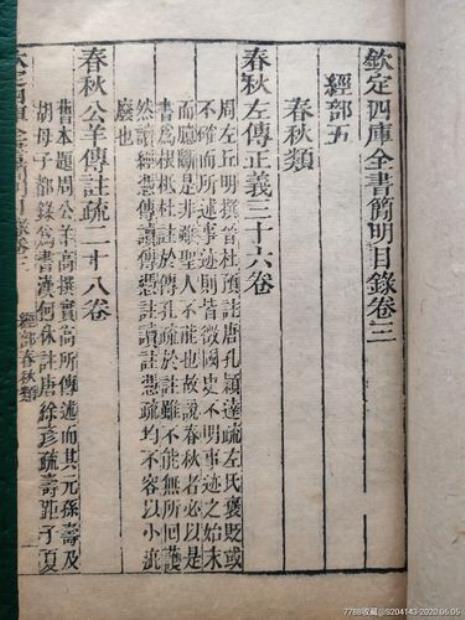 欽定四庫全書簡明目錄卷三
經部五
春秋類
春秋左傳正義三十六卷
周左丘明撰晉杜預註唐孔穎達疏左氏褒貶或
不確而所述事迹則皆徵國史不明事迹之始末
而臆斷是非雖聖人不能也故說春秋者必以是
書爲根柢杜註於傳孔疏於註雖不能無所回護
然讀經憑傳讀傳憑註讀註憑疏均不容以小疵
廢也
春秋公羊傳註疏二十八卷
舊本題周公羊高撰實高所傳述而其元孫壽及
胡母子都錄爲書漢何休註唐徐彥疏壽距子夏
欽定四庫全書簡明目錄卷三
經部春秋類
一
7788收藏@S204143-2020.06.05